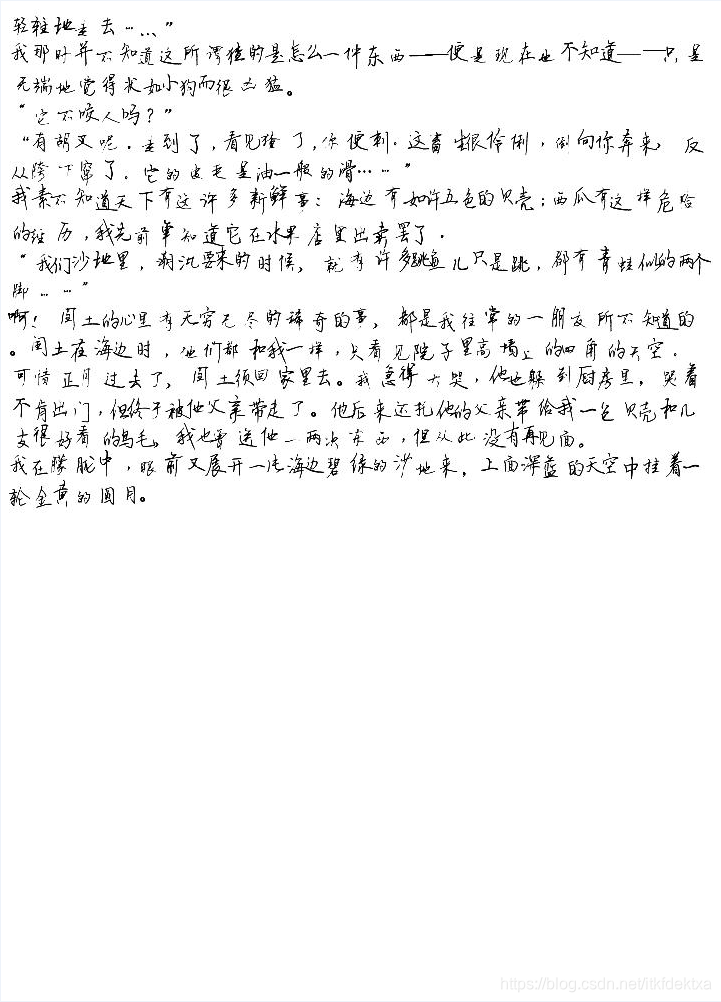 轻轻地走去……”
我那时并不知道这所谓猹的是怎么一件东西——便是现在也不知道——只是
无端地觉得状如小狗而很凶猛。
“它不咬人吗？”
“有胡叉呢。走到了，看见猹了，你便刺。这畜生很伶俐，倒向你奔来，反
从胯下窜了。它的皮毛是油一般的滑……”
我素不知道天下有这许多新鲜事：海边有如许五色的贝壳；西瓜有这样危险
的经历，我先前单知道它在水果店里出卖罢了。
“我们沙地里，潮汛要来的时候，就有许多跳鱼儿只是跳，都有青蛙似的两个
脚……”
啊！闰土的心里有无穷无尽的稀奇的事，都是我往常的一朋友所不知道的
。闰土在海边时，他们都和我一样，只看见院子里高墙上的四角的天空。
可惜正月过去了，闰土须回家里去。我急得大哭，他也躲到厨房里，哭着
不肯出门，但终于被他父亲带走了。他后来还托他的父亲带给我一包贝壳和几
支很好看的鸟毛，我也曾送他一两次东西，但从此没有再见面。
我在朦胧中，眼前又展开一片海边碧绿的沙地来，上面深蓝的天空中挂着一
轮金黄的圆月。
https://blog.csdn.net/itkfdektxa